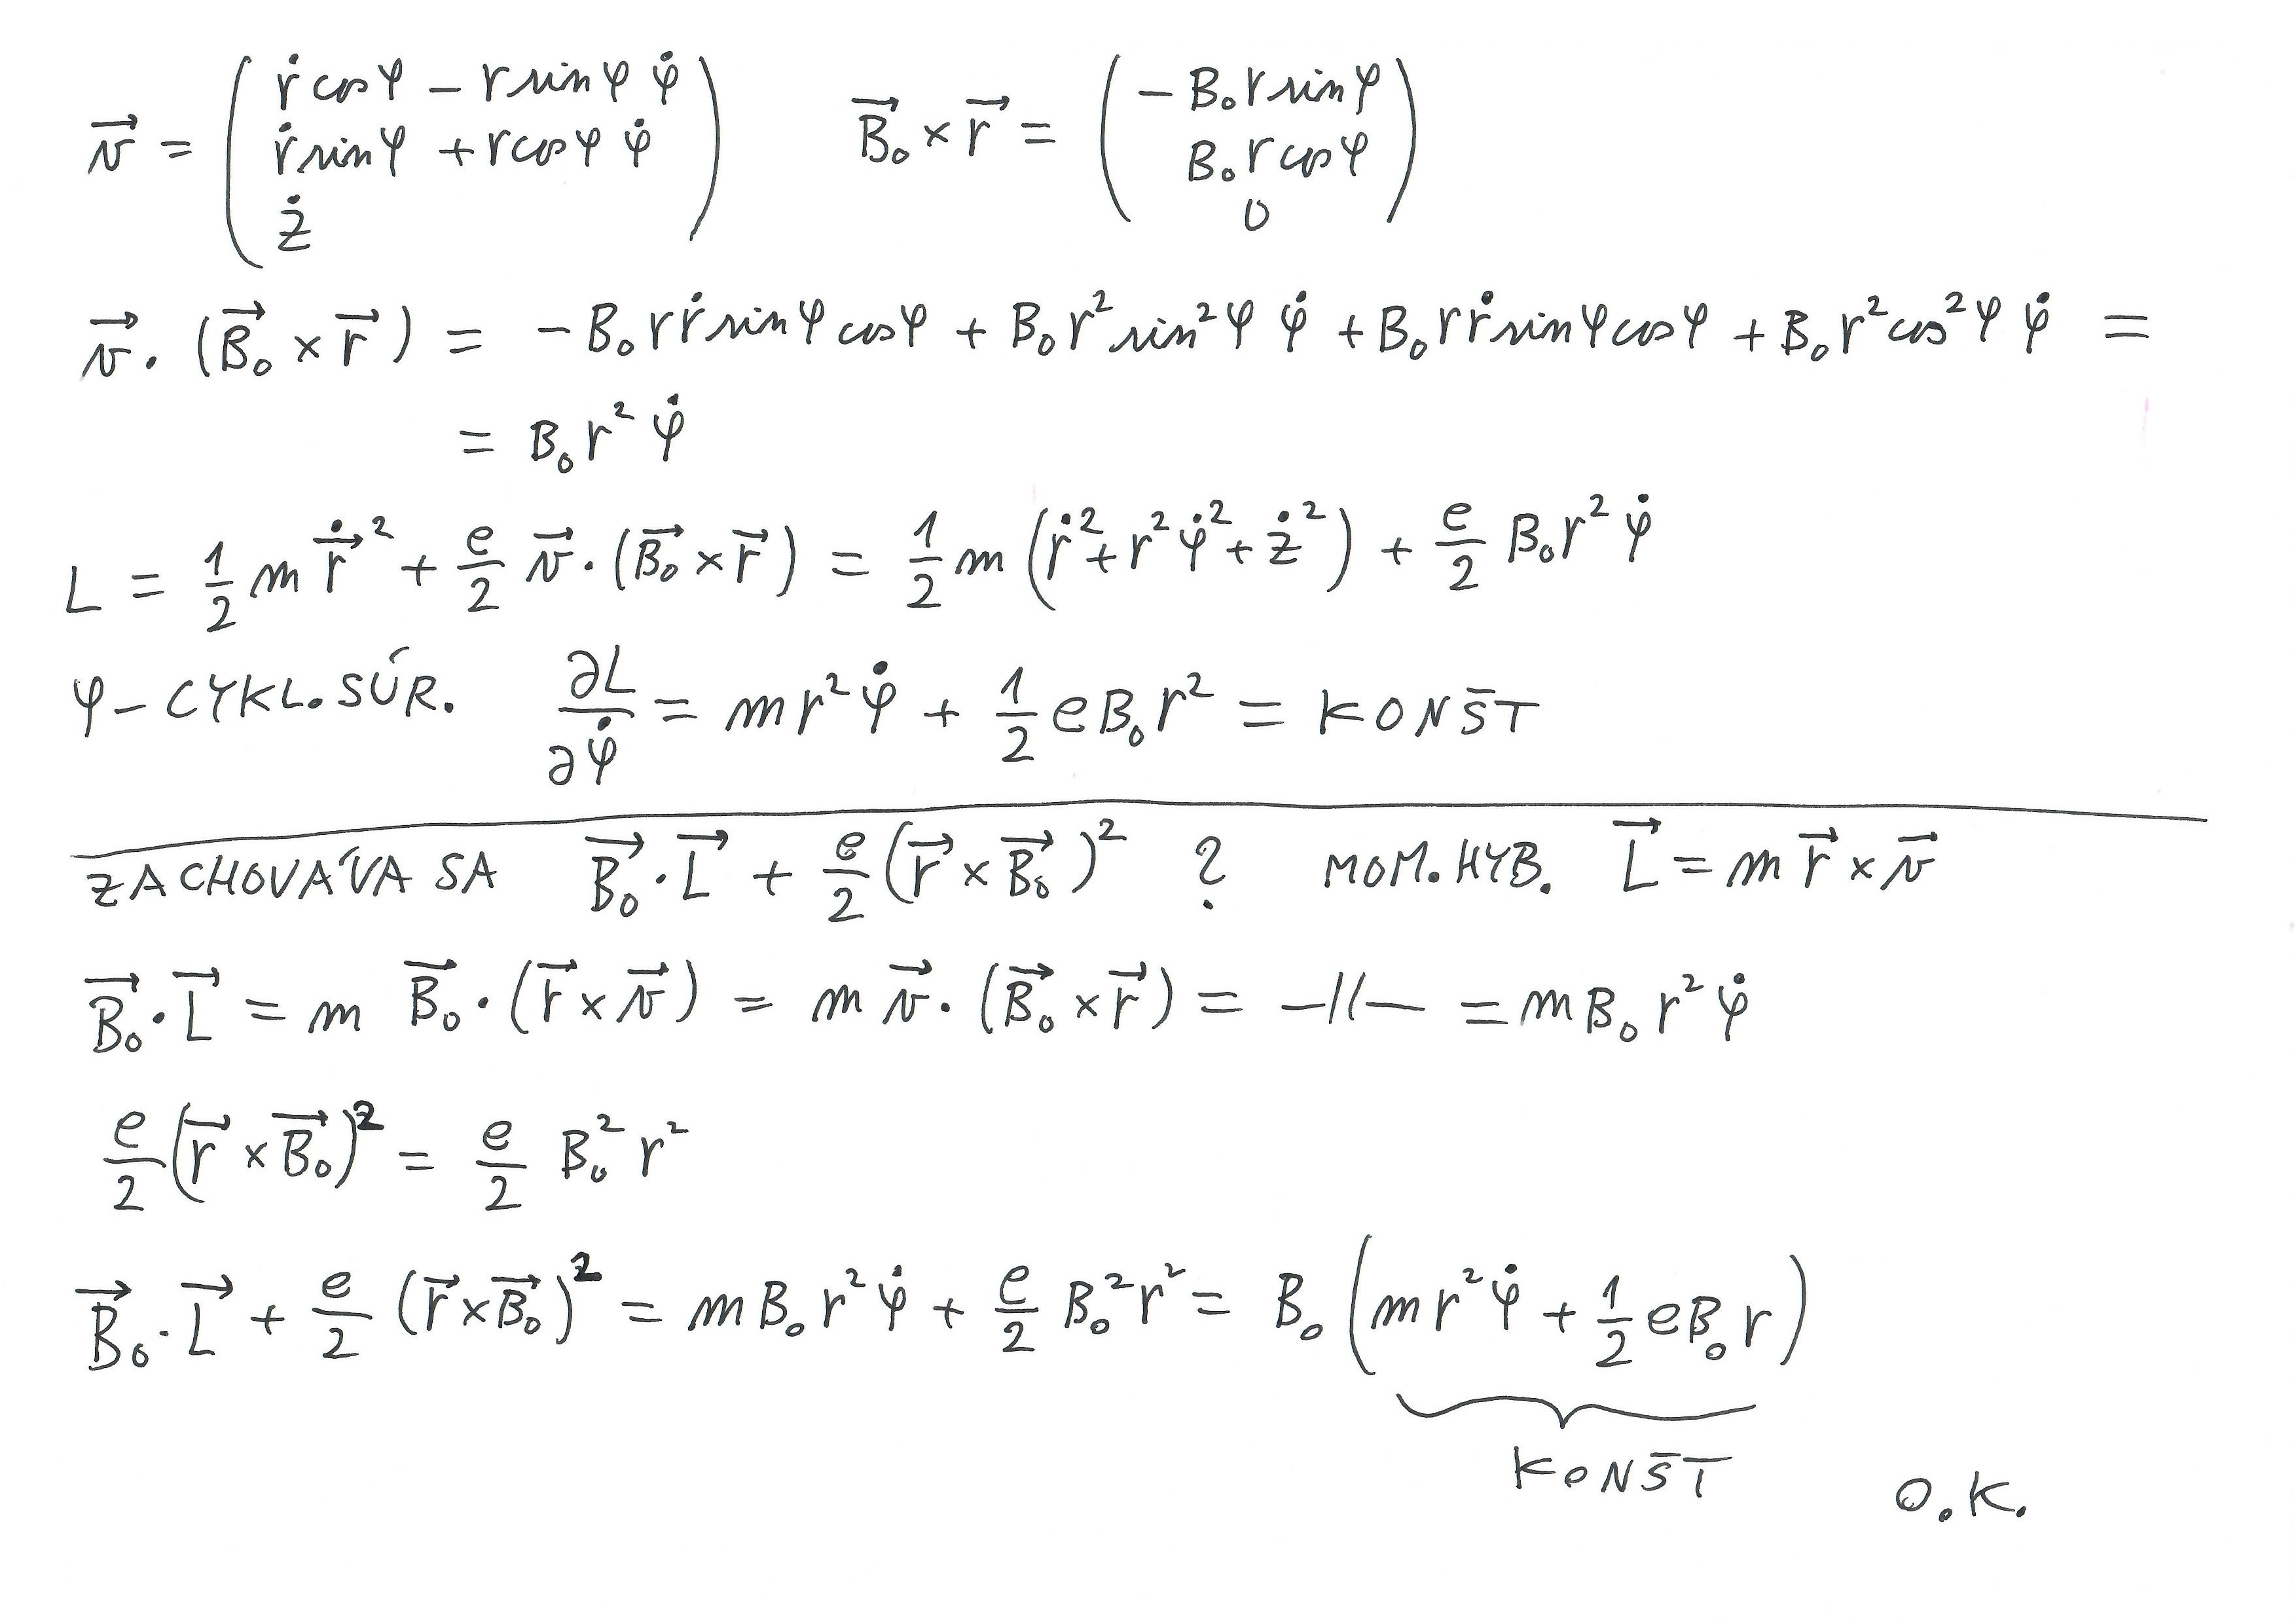 $\vec{v} = \begin{pmatrix} \dot{r}\cos\varphi - r\sin\varphi\,\dot{\varphi} \\ \dot{r}\sin\varphi + r\cos\varphi\,\dot{\varphi} \\ \dot{z} \end{pmatrix} \quad \vec{B}_0 \times \vec{r} = \begin{pmatrix} -B_0 r\sin\varphi \\ B_0 r\cos\varphi \\ 0 \end{pmatrix}$
$\vec{v}\cdot(\vec{B}_0\times\vec{r}) = -B_0 r\dot{r}\sin\varphi\cos\varphi + B_0 r^2\sin^2\varphi\,\dot{\varphi} + B_0 r\dot{r}\sin\varphi\cos\varphi + B_0 r^2\cos^2\varphi\,\dot{\varphi} =$
$= B_0 r^2\dot{\varphi}$
$L = \frac{1}{2}m\dot{\vec{r}}^2 + \frac{e}{2}\vec{v}\cdot(\vec{B}_0\times\vec{r}) = \frac{1}{2}m(\dot{r}^2 + r^2\dot{\varphi}^2 + \dot{z}^2) + \frac{e}{2}B_0 r^2\dot{\varphi}$
φ – CYKL. SÚR. $\frac{\partial L}{\partial\dot{\varphi}} = mr^2\dot{\varphi} + \frac{1}{2}eB_0 r^2 =$ KONŠT
ZACHOVÁVA SA $\vec{B}_0\cdot\vec{L} + \frac{e}{2}(\vec{r}\times\vec{B}_0)^2$ ? MOM. HYB. $\vec{L} = m\vec{r}\times\vec{v}$
$\vec{B}_0\cdot\vec{L} = m\vec{B}_0\cdot(\vec{r}\times\vec{v}) = m\vec{v}\cdot(\vec{B}_0\times\vec{r}) =$ —//— $= mB_0 r^2\dot{\varphi}$
$\frac{e}{2}(\vec{r}\times\vec{B}_0)^2 = \frac{e}{2}B_0^2 r^2$
$\vec{B}_0\cdot\vec{L} + \frac{e}{2}(\vec{r}\times\vec{B}_0)^2 = mB_0 r^2\dot{\varphi} + \frac{e}{2}B_0^2 r^2 = B_0\left(mr^2\dot{\varphi} + \frac{1}{2}eB_0 r\right)$
KONŠT
O.K.